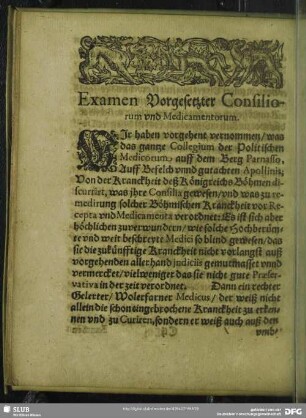 Examen Vorgesetzter Consilio-
rum vnd Medicamentorum.
WIr haben vorgehent vernommen/ was
das gantze Collegium der Politischen
Medicorum, auff dem Berg Parnasso,
Auff Befelch vnnd gutachten Apollinis,
Von der Kranckheit deß Königreichs Böhmen di-
scuriert, was jhre Consilia gewesen/ vnd was zu re-
medirung solcher Böhmischen Kranckheit vor Re-
cepta vnd Medicamenta verordnet: Es ist sich aber
höchlichen zuverwundern/ wie solche Hochberüm-
te vnd weit beschreyte Medici so blind gewesen/ das
sie die zukünfftige Kranckheit nicht vorlangst auß
vorgehenden allerhand judiciis gemutmasset vnnd
vermercket/ vielweniger das sie nicht gute Præser-
vativa in der zeit verordnet. Dann ein rechter
Gelerter/ Wolerfarner Medicus/ der weiß nicht
allein die schon eingebrochene Kranckheit zu erken-
nen vnd zu Curiren, sondern er weiß auch auß den
SLUB
DFG